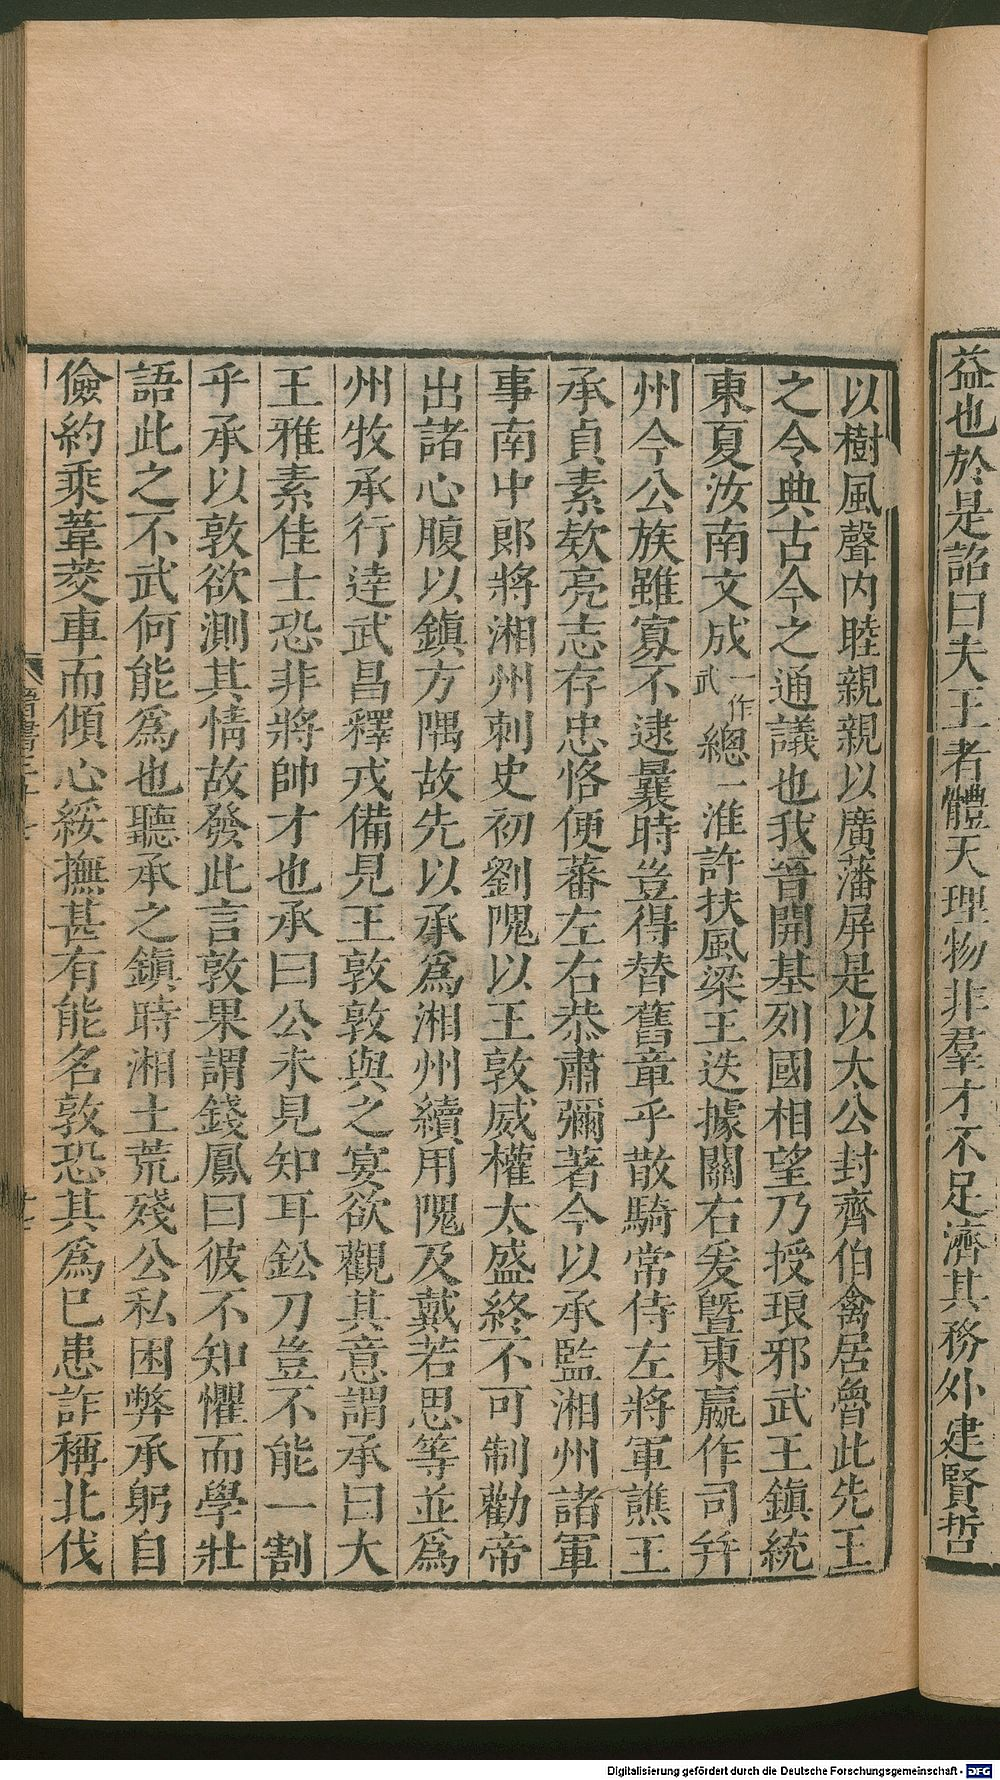 益也於是詔曰夫王者體天理物非羣才不足濟其務外建賢哲
以樹風聲内睦親親以廣藩屏是以太公封齊伯禽居魯此先王
之令典古今之通議也我晉開基列國相望乃授琅邪武王鎮統
東夏汝南文成一作武總一淮許扶風梁王迭據關右爰暨東嬴作司并
州今公族雖寡不逮曩時豈得替舊章乎散騎常侍左將軍譙王
承貞素欵亮志存忠恪便蕃左右恭肅彌著今以承監湘州諸軍
事南中郎將湘州刺史初劉隗以王敦威權太盛終不可制勸帝
出諸心腹以鎮方隅故先以承爲湘州續用隗及戴若思等並爲
州牧承行逹武昌釋戎備見王敦敦與之宴欲觀其意謂承曰大
王雅素佳士恐非將帥才也承曰公未見知耳鈆刀豈不能一割
乎承以敦欲測其情故發此言敦果謂錢鳳曰彼不知懼而學壯
語此之不武何能爲也聽承之鎮時湘土荒殘公私困弊承躬自
儉約乘葦茭車而傾心綏撫甚有能名敦恐其爲已患詐稱北伐
Digitalisierung gefördert durch die Deutsche Forschungsgemeinschaft - DFG